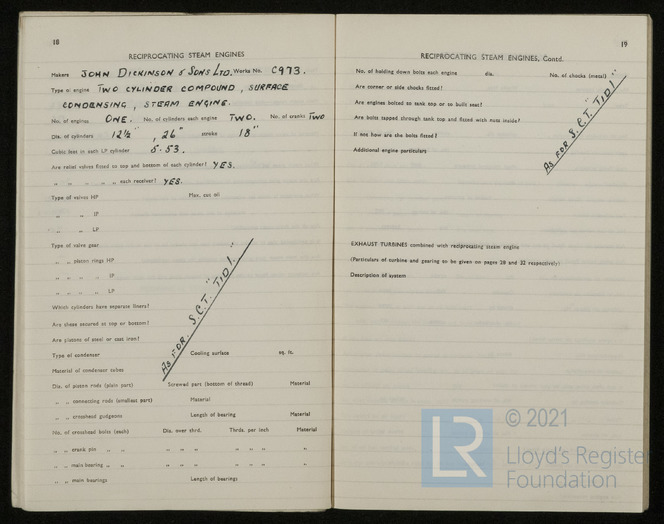 18
RECIPROCATING STEAM ENGINES
Makers JOHN DICKINSON & SONS LTD. Works No. C973.
Type of engine TWO CYLINDER COMPOUND, SURFACE
CONDENSING, STEAM ENGINE.
No. of engines ONE. No. of cylinders each engine TWO. No. of cranks TWO
Dia. of cylinders 12½", 26" stroke 18"
Cubic feet in each LP cylinder 5.53.
Are relief valves fitted to top and bottom of each cylinder? YES.
" " " " " each receiver? YES.
Type of valves HP Max. cut off
" " IP
" " LP
Type of valve gear
" " piston rings HP
" " " " IP
" " " " LP
Which cylinders have separate liners?
Are these secured at top or bottom?
Are pistons of steel or cast iron?
Type of condenser Cooling surface sq. ft.
Material of condenser tubes
AS FOR. S.C.T. "TID 1."
Dia. of piston rods (plain part) Screwed part (bottom of thread) Material
" " connecting rods (smallest part) Material
" " crosshead gudgeons Length of bearing Material
No. of crosshead bolts (each) Dia. over thrd. Thrds. per inch Material
" " crank pin " " " " " " " " "
" " main bearing " " " " " " " " "
" " main bearings Length of bearings
19
RECIPROCATING STEAM ENGINES, Contd.
No. of holding down bolts each engine dia. No. of chocks (metal)
Are corner or side chocks fitted?
Are engines bolted to tank top or to built seat?
Are bolts tapped through tank top and fitted with nuts inside?
If not how are the bolts fitted?
Additional engine particulars
AS FOR S.C.T. "TID 1."
EXHAUST TURBINES combined with reciprocating steam engine
(Particulars of turbine and gearing to be given on pages 28 and 32 respectively)
Description of system
LR
© 2021
Lloyd's Register
Foundation